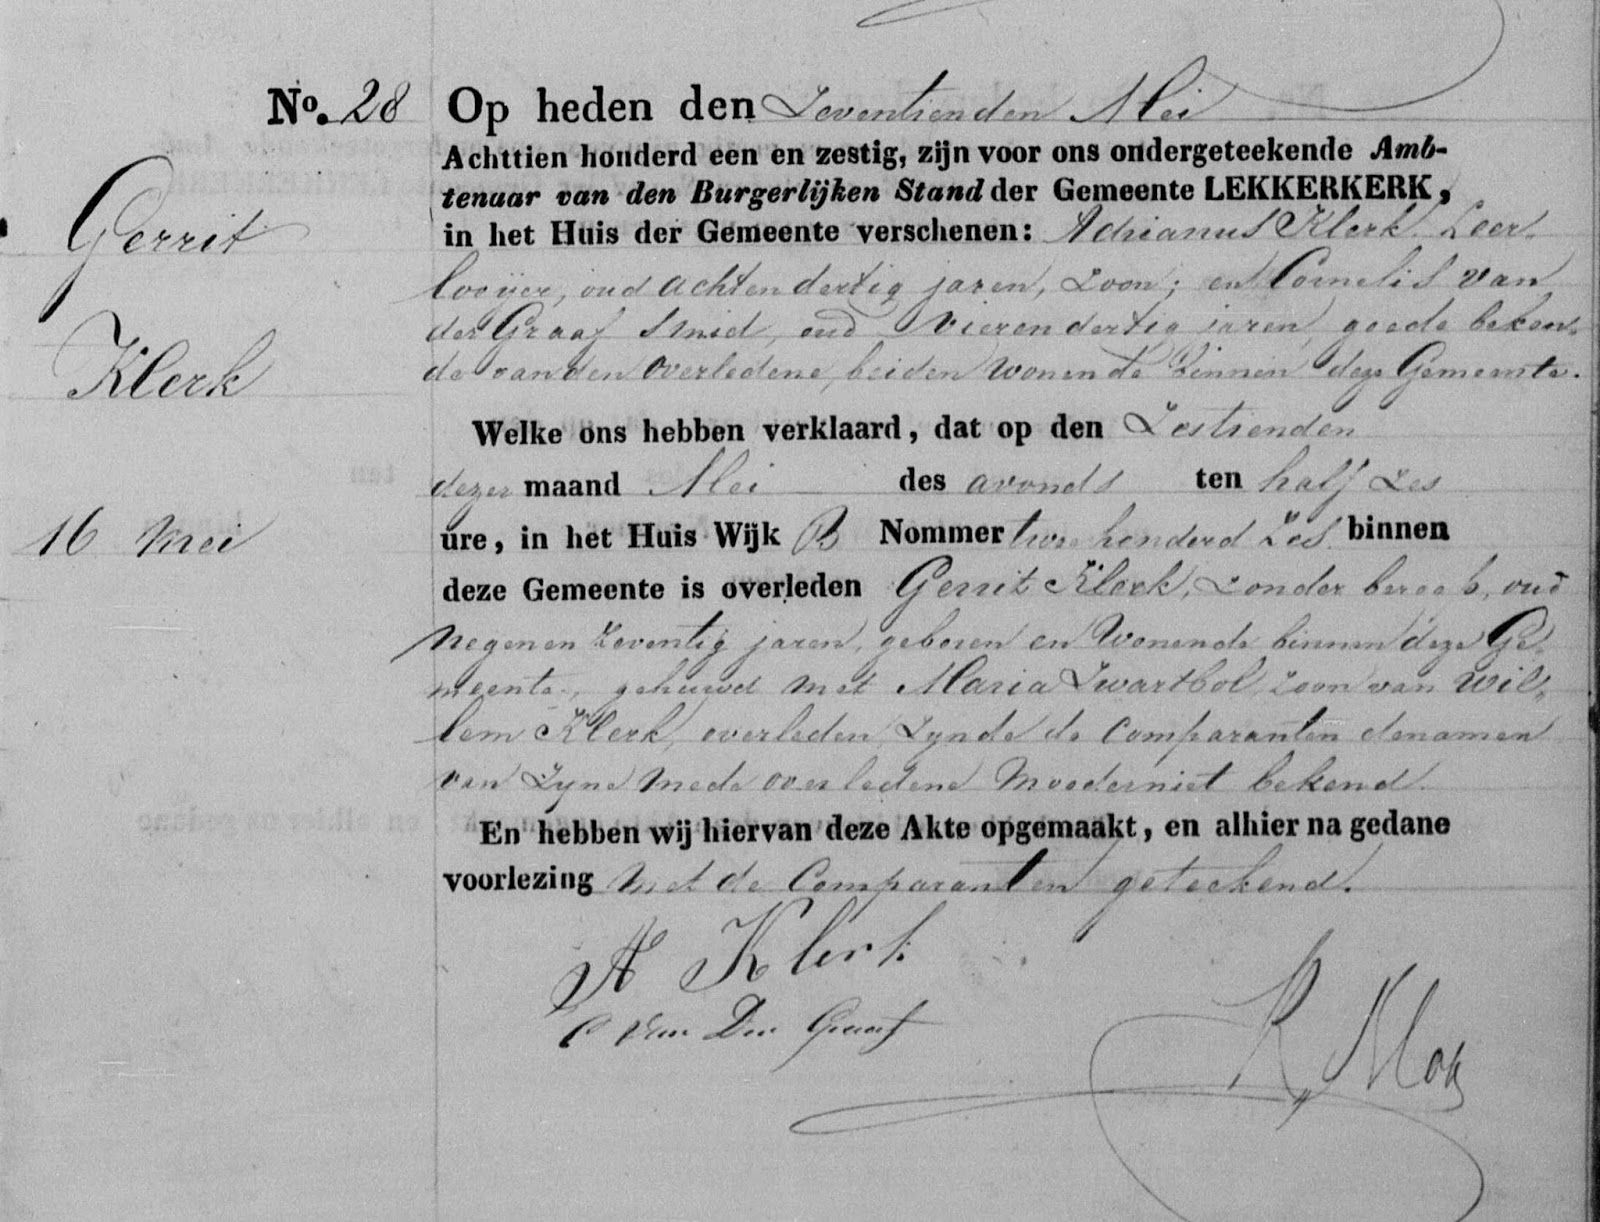 No. 28 Op heden den Zeventienden Mei
Achttien honderd een en zestig, zijn voor ons ondergeteekende Amb-
tenaar van den Burgerlijken Stand der Gemeente LEKKERKERK,
in het Huis der Gemeente verschenen: Adrianus Klerk Leer-
looijer, oud achtendertig jaren, Zoon; en Cornelis van
der Graaf Smid, oud vierendertig jaren, goede beken-
de van den Overledene, beiden Wonende binnen deze Gemeente.
Welke ons hebben verklaard, dat op den Zestienden
dezer maand Mei des avonds ten half zes
ure, in het Huis Wijk B Nommer twee honderd Zes binnen
deze Gemeente is overleden Gerrit Klerk, Zonder beroep, oud
Negenen Zeventig jaren, geboren en Wonende binnen deze Ge-
meente, gehuwd met Maria Zwartbol, Zoon van Wil-
lem Klerk, overleden, Zynde de Comparanten de namen
van Zyne mede overledene Moeder niet bekend.
En hebben wij hiervan deze Akte opgemaakt, en alhier na gedane
voorlezing met de Comparanten geteekend.
A Klerk
C Van Der Graaf
Gerrit
Klerk
16 Mei